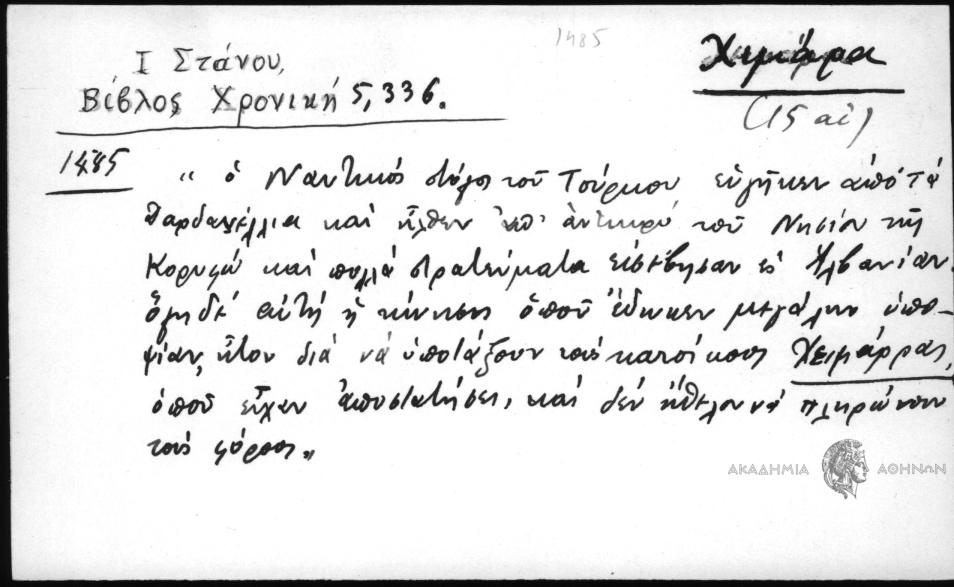 1485
Ι Στάνου,
Βίβλος Χρονική 5, 336.
Χειμάρρα
(15 αἰ)
1485 „ ὁ Ναυτικός στόλος τοῦ Τούρκου εὐγῆκεν ἀπό τά
Δαρδανέλλια καί ἦλθεν ἀπ' ἀντικρύ τοῦ Νησίου τῆς
Κορυφῶ καί πολλά στρατεύματα εἰσέβησαν εἰς Ἀλβανίαν.
ὅλη δέ αὐτή ἡ κίνησις ὁποῦ ἔδωκεν μεγάλην ὑπο-
ψίαν, ἦτον διά νά ὑποτάξουν τούς κατοίκους Χειμάρρας,
ὁποῦ εἶχαν ἀποστατήσει, καί δέν ἤθελον νά πληρώνουν
τούς φόρους „
ΑΚΑΔΗΜΙΑ ΑΘΗΝΩΝ